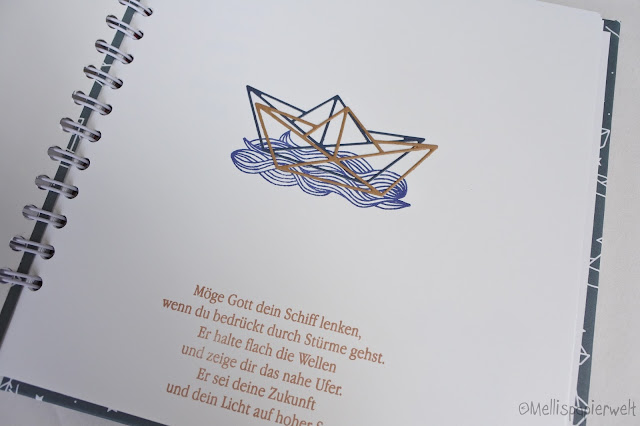 Möge Gott dein Schiff lenken,
wenn du bedrückt durch Stürme gehst.
Er halte flach die Wellen
und zeige dir das nahe Ufer.
Er sei deine Zukunft
und dein Licht auf hoher
©Mellispapierwelt